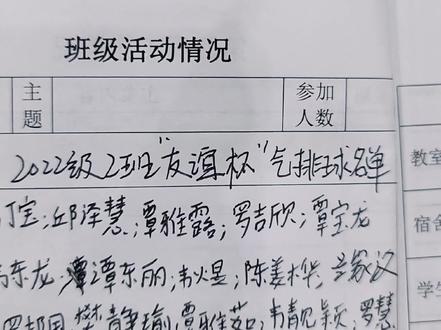 班级活动情况
主题 参加人数
2022级2班"友谊杯"气排球名单
宝;邱泽慧;覃雅露;罗吉欣;覃宝龙
东龙;覃东丽;韦火昱;陈姜桦
樊静瑜;覃雅茹;韦靓颖;罗慧
教室
宿舍
学生